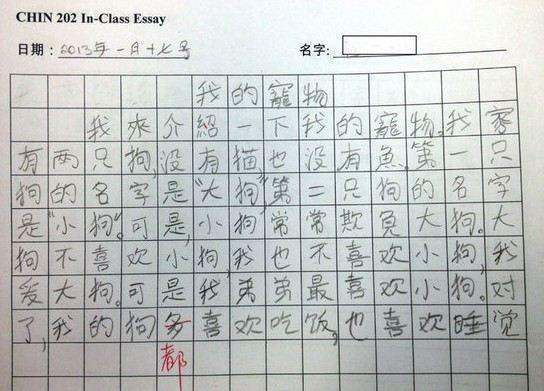 CHIN 202 In-Class Essay
日期：2013年一月十七号 名字：
我的寵物
我來介紹一下我的寵物。我家
有两只狗，没有猫也没有魚。第一只
狗的名字是“大狗”，第二只狗的名字
是“小狗”。可是，小狗常常欺負大狗。大
狗不喜欢小狗，我也不喜欢小狗，我
爱大狗。可是我弟弟最喜欢小狗。对
了，我的狗喜欢吃饭，也喜欢睡觉
都